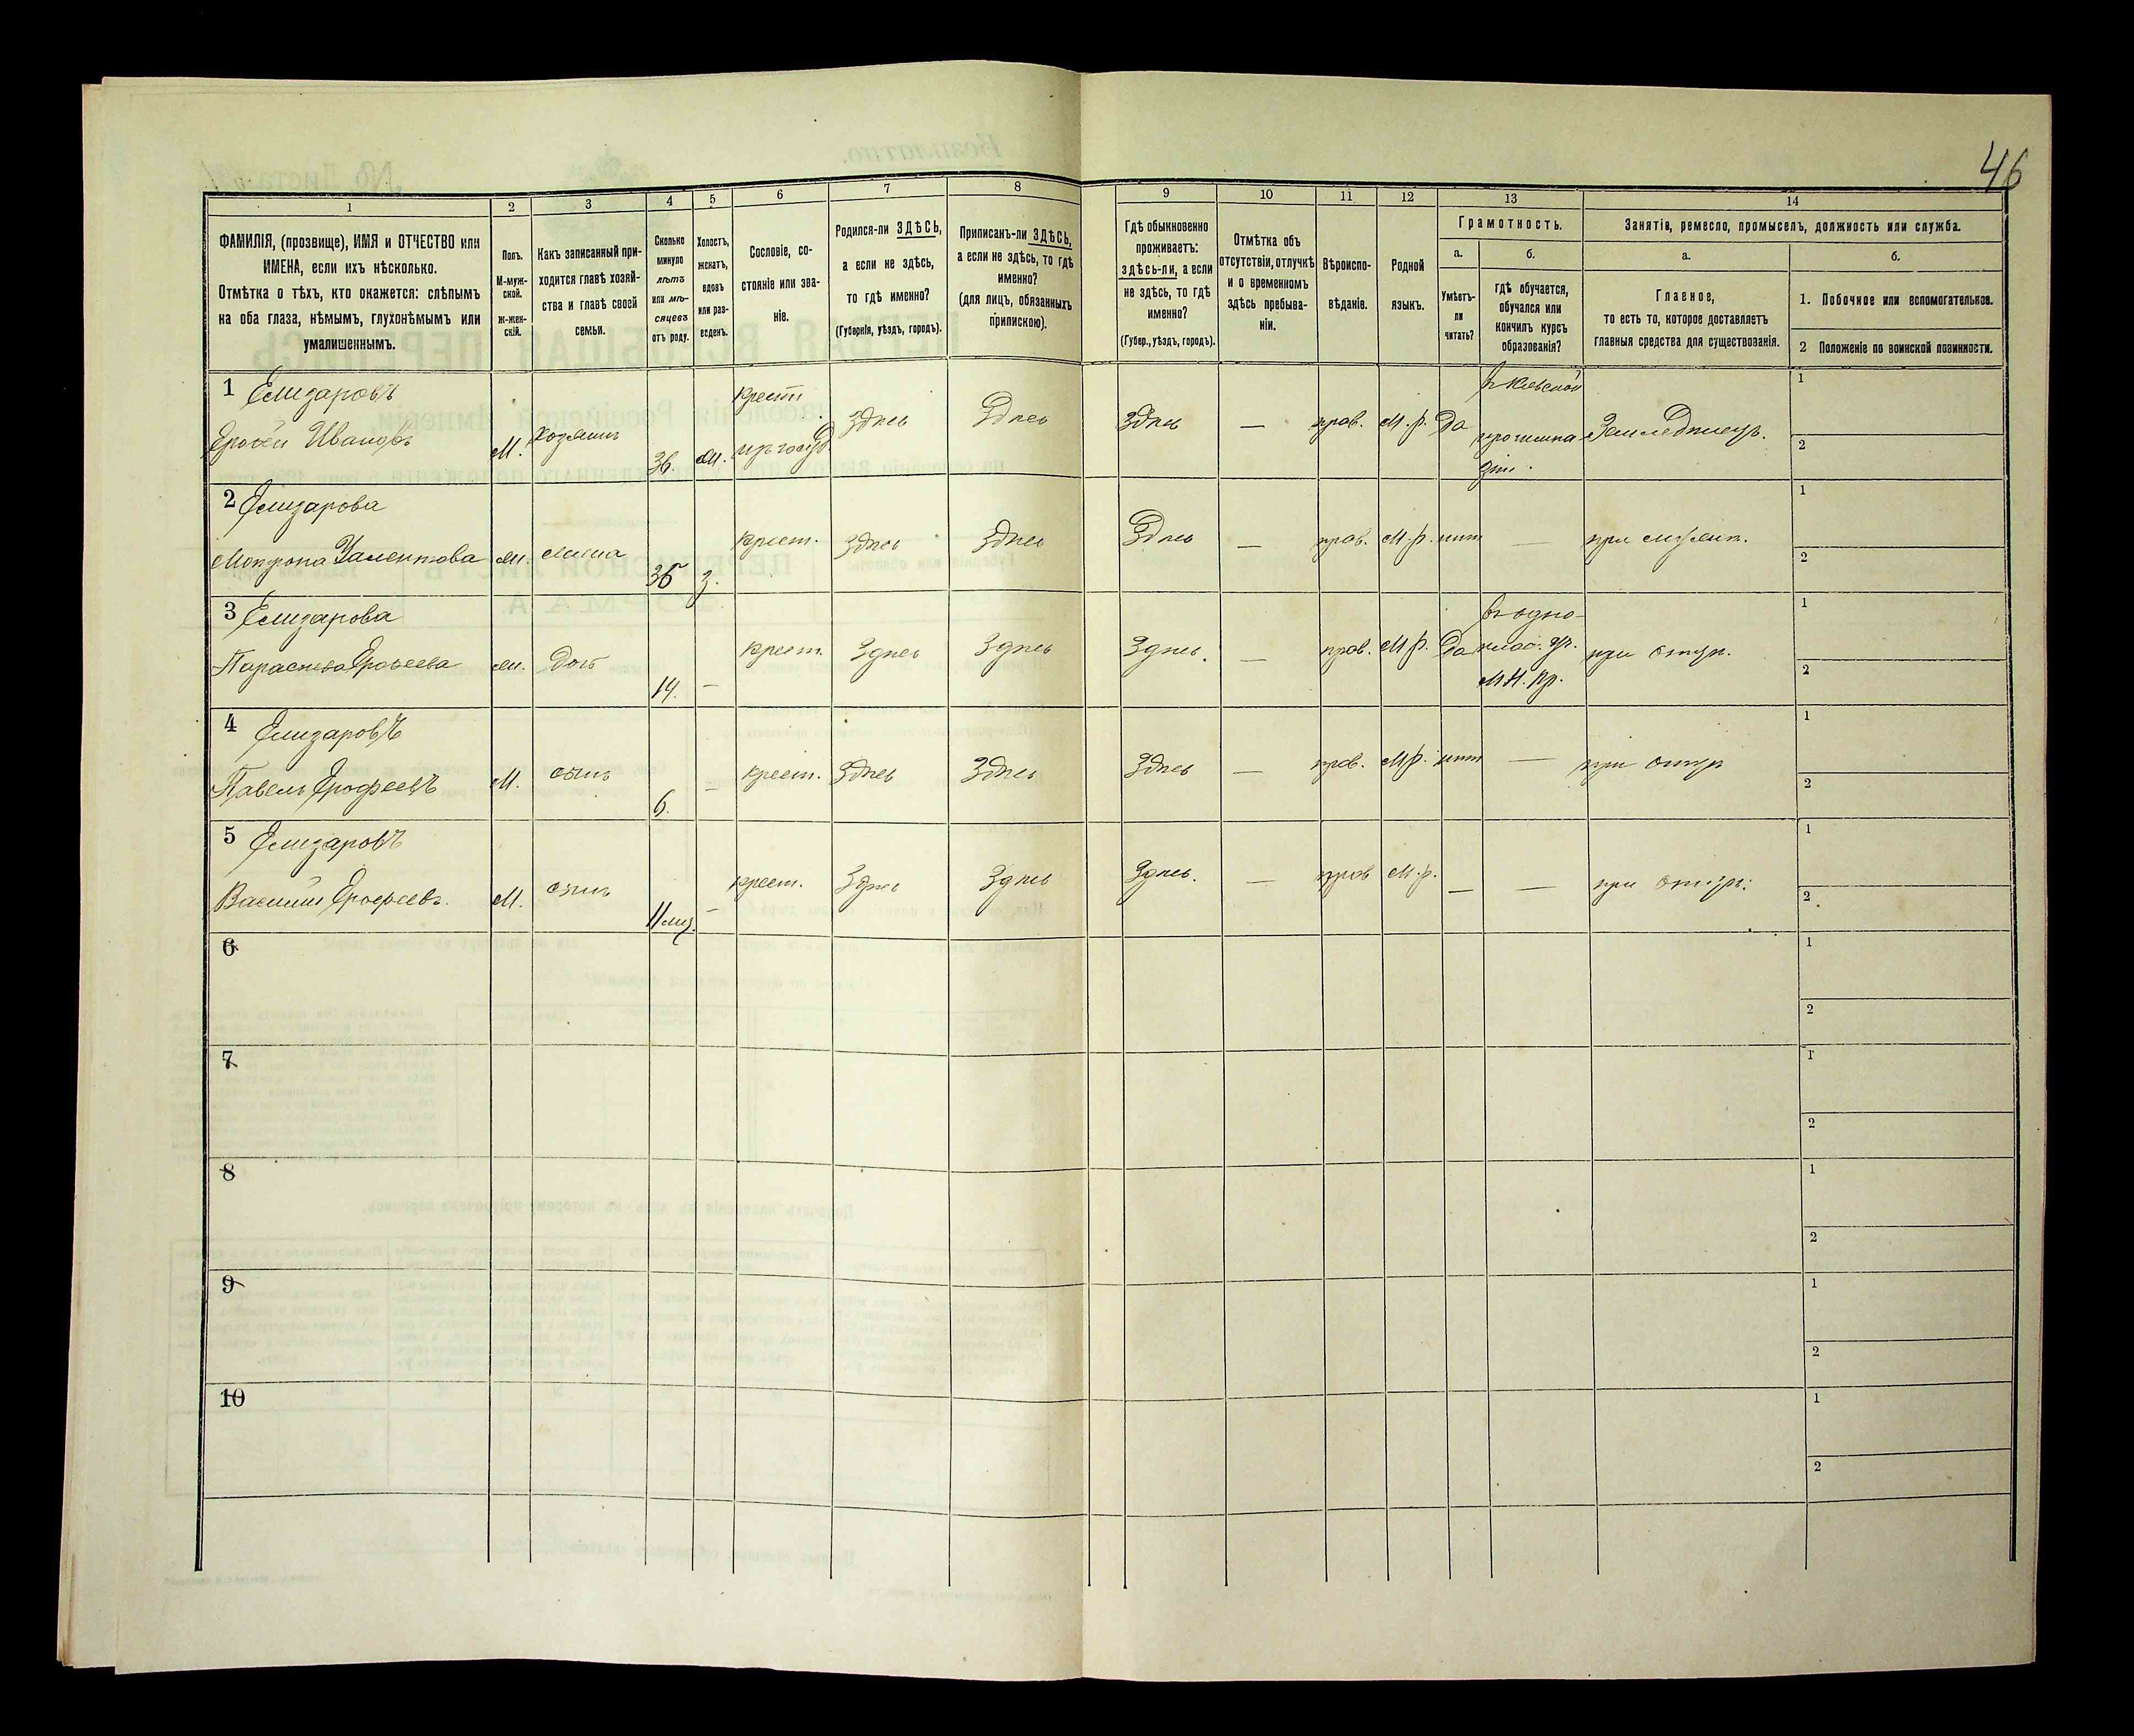 46
1
2
3
4
5
6
7
8
9
10
11
12
13
14
ФАМИЛІЯ, (прозвище), ИМЯ и ОТЧЕСТВО или
ИМЕНА, если ихъ нѣсколько.
Отмѣтка о тѣхъ, кто окажется: слѣпымъ
на оба глаза, нѣмымъ, глухонѣмымъ или
умалишеннымъ.
Полъ.
М-муж-
ской.
Ж-жен-
скій.
Какъ записанный при-
ходится главѣ хозяй-
ства и главѣ своей
семьи.
Сколько
минуло
лѣтъ
или мѣ-
сяцевъ
отъ роду.
Холостъ,
женатъ,
вдовъ
или раз-
веденъ.
Сословіе, со-
стояніе или зва-
ніе.
Родился-ли ЗДѢСЬ,
а если не здѣсь,
то гдѣ именно?
(Губернія, уѣздъ, городъ).
Приписанъ-ли ЗДѢСЬ,
а если не здѣсь, то гдѣ
именно?
(для лицъ, обязанныхъ
припискою).
Гдѣ обыкновенно
проживаетъ:
здѣсь-ли, а если
не здѣсь, то гдѣ
именно?
(Губер., уѣздъ, городъ).
Отмѣтка объ
отсутствіи, отлучкѣ
и о временномъ
здѣсь пребыва-
ніи.
Вѣроиспо-
вѣданіе.
Родной
языкъ.
Грамотность.
а.
Умѣетъ-
ли
читать?
б.
гдѣ обучается,
обучался или
кончилъ курсъ
образованія?
Занятія, ремесло, промыселъ, должность или служба.
а.
Главное,
то есть то, которое доставляетъ
главныя средства для существованія.
б.
1. Побочное или вспомогательное.
2 Положеніе по воинской повинности.
1 Елизаровъ
Ерофей Ивановъ М. хозяинъ 36. ж. крест. здѣсь Здѣсь Здѣсь — прав. М.р. Да Земледѣлецъ. 1 2
2 Елизарова
Матрона ж. жена 35 з. крест. здѣсь здѣсь Здѣсь — прав. М.р. нѣтъ — при мужѣ. 1 2
3 Елизарова
Параскева Ерофеева ж. дочь 14. — крест. Здѣсь Здѣсь Здѣсь. — прав. М.р. Да въ одно-
клас. уч.
М.Н.Пр. при отцѣ. 1 2
4 Елизаровъ
Павелъ Ерофеевъ М. сынъ 6. — крест. Здѣсь Здѣсь Здѣсь — прав. М.р. нѣтъ — при отцѣ 1 2
5 Елизаровъ
Василій Ерофеевъ. М. сынъ 11 мѣс. — крест. Здѣсь Здѣсь Здѣсь. — прав М.р. — — при отцѣ. 1 2
6 1 2
7 1 2
8 1 2
9 1 2
10 1 2